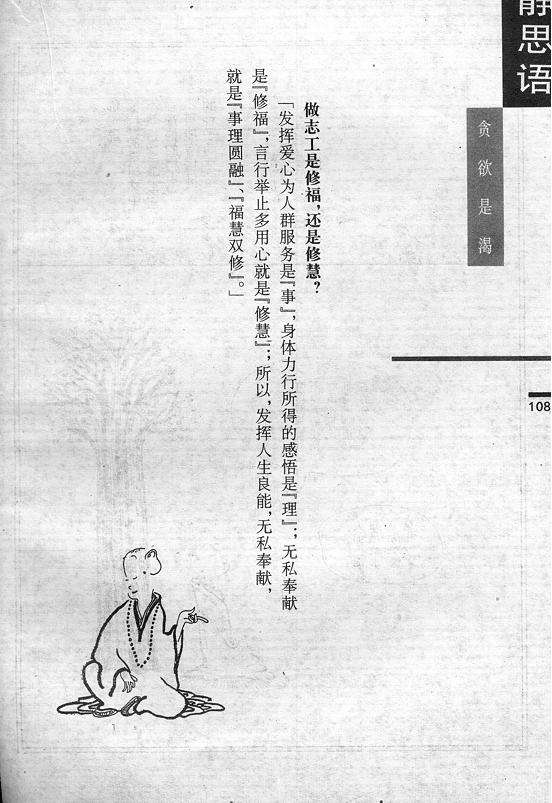 静思语
贪欲是渴
108
做志工是修福，还是修慧？
「发挥爱心为人群服务是『事』，身体力行所得的感悟是『理』；无私奉献
是『修福』，言行举止多用心就是『修慧』；所以，发挥人生良能，无私奉献，
就是『事理圆融』、『福慧双修』。」